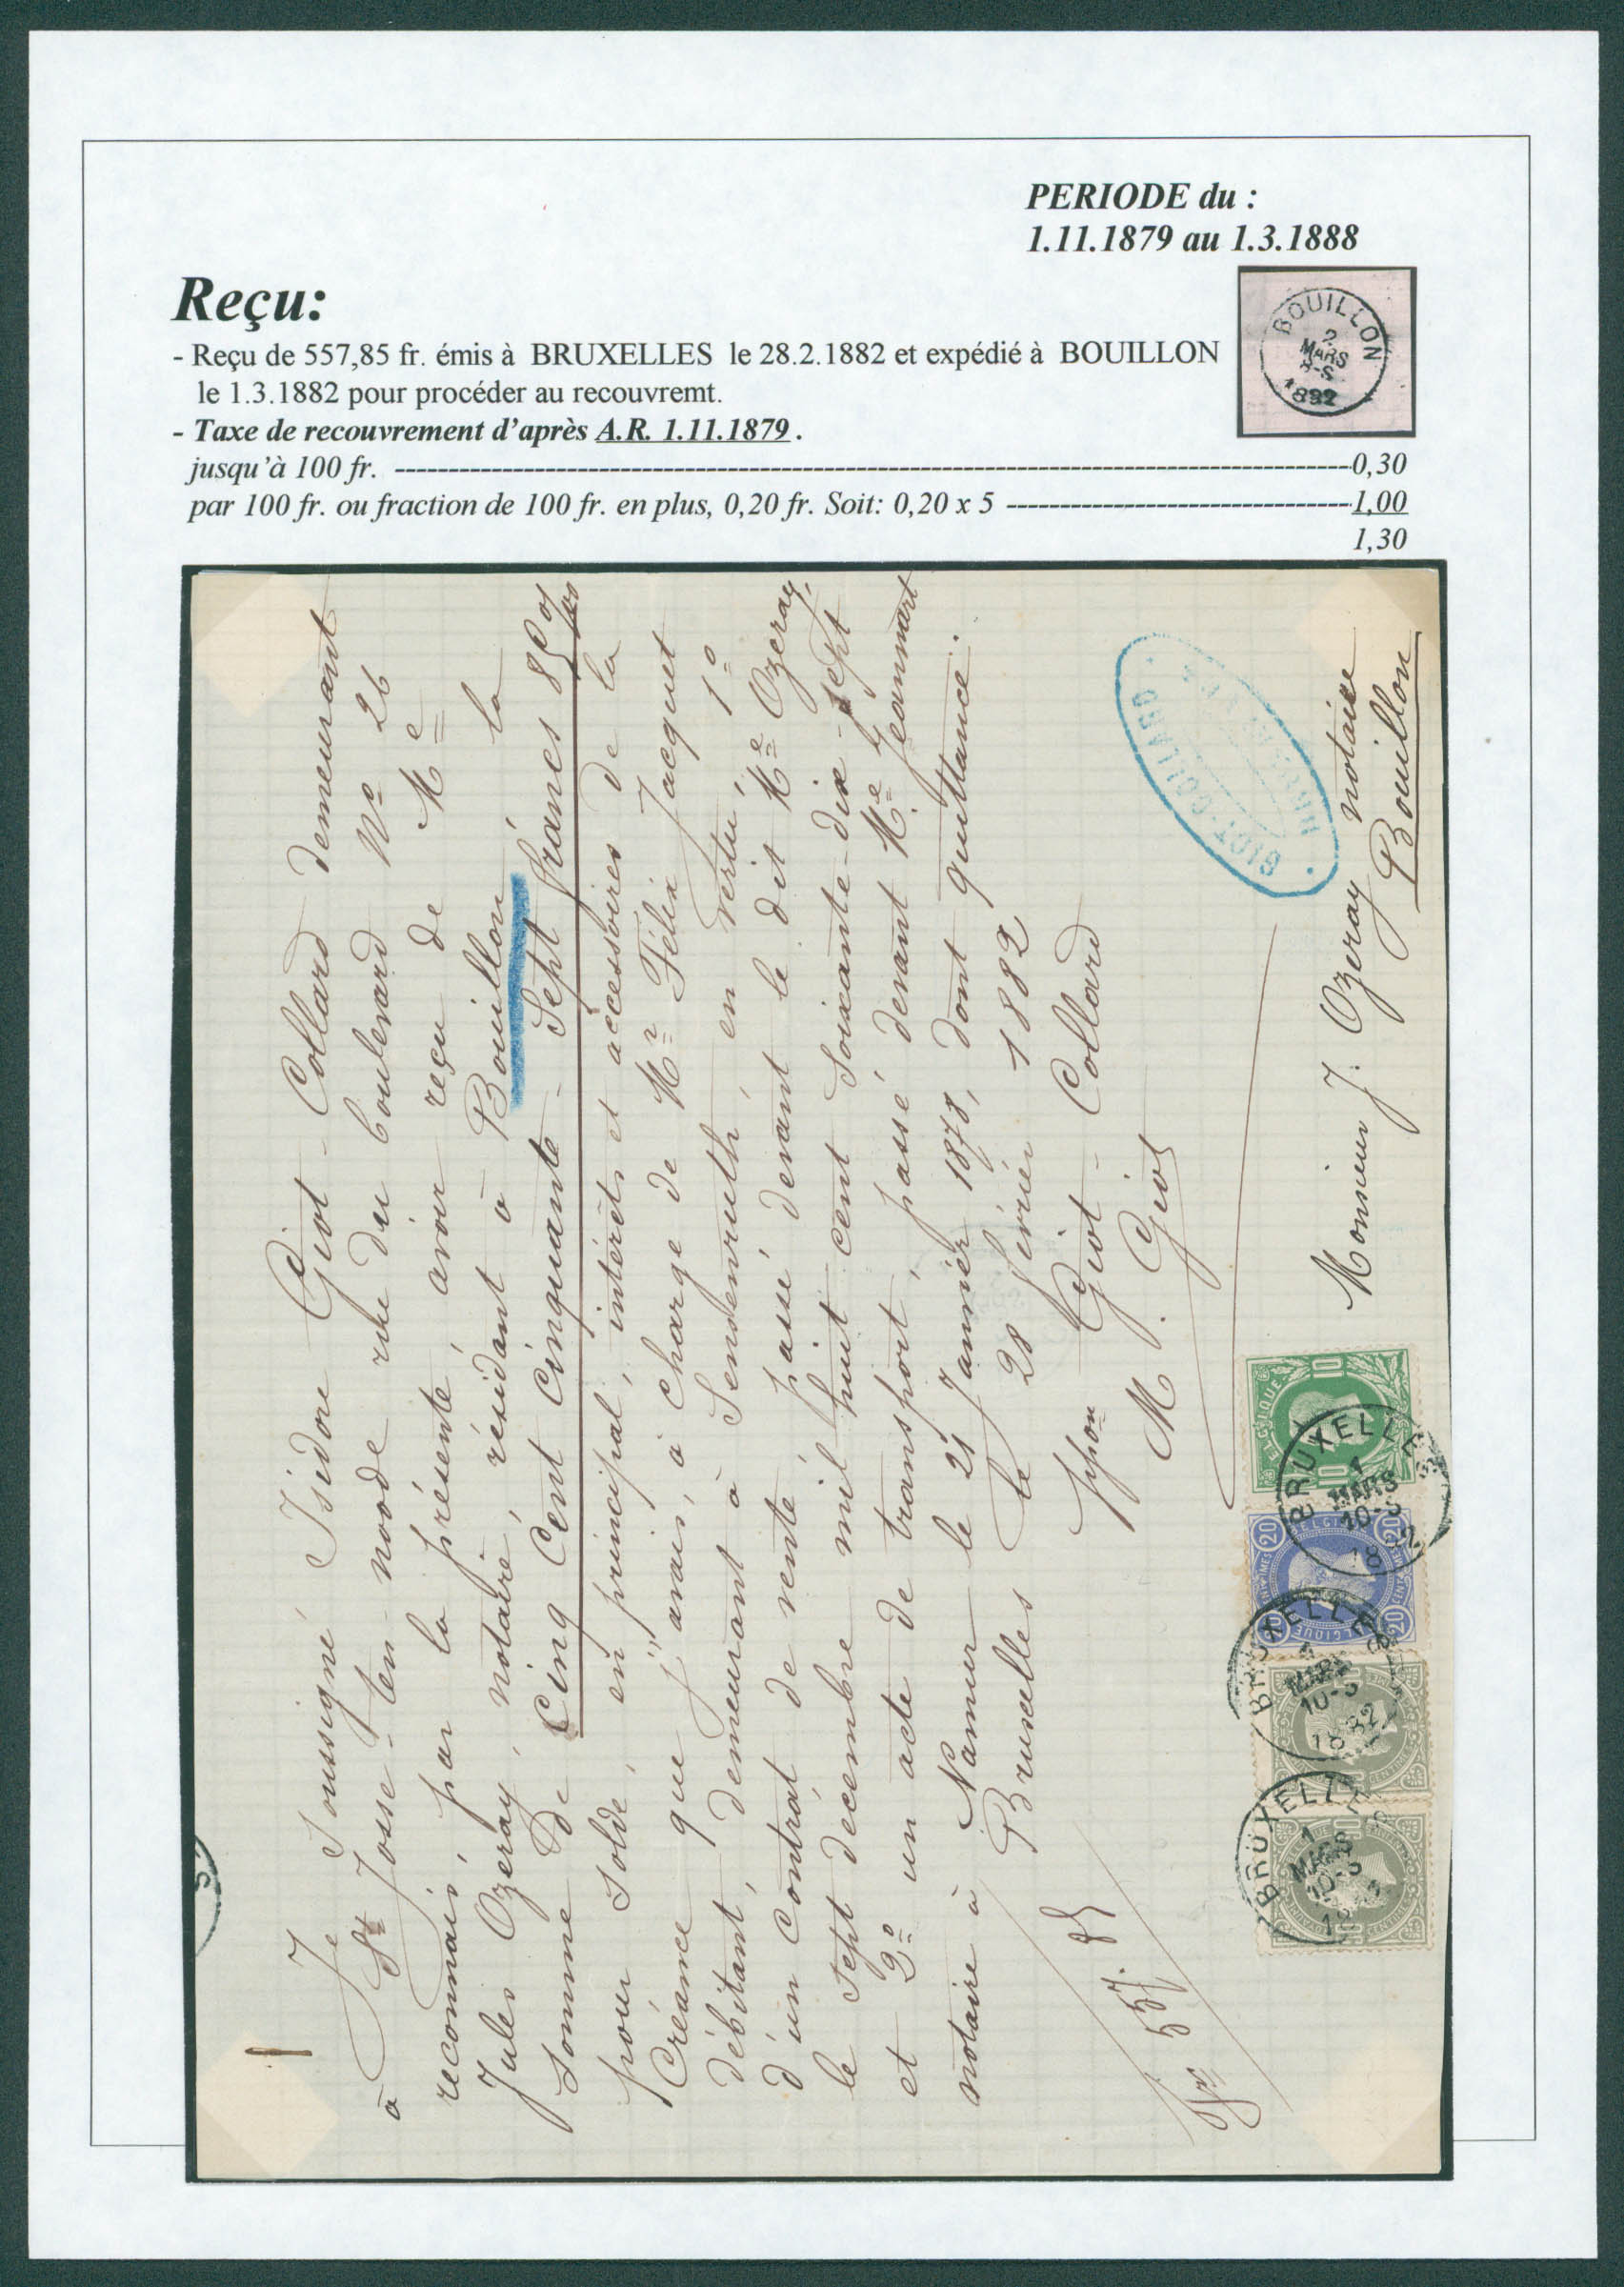 PERIODE du :
1.11.1879 au 1.3.1888
Reçu:
BOUILLON
2
MARS
8-S
1882
- Reçu de 557,85 fr. émis à BRUXELLES le 28.2.1882 et expédié à BOUILLON
le 1.3.1882 pour procéder au recouvremt.
- Taxe de recouvrement d'après A.R. 1.11.1879.
jusqu'à 100 fr. 0,30
par 100 fr. ou fraction de 100 fr. en plus, 0,20 fr. Soit: 0,20 x 5 1,00
1,30
Je soussigné Isidore Giot-Collard demeurant
à St Josse-ten-noode rue du boulevard No 26
reconnais, par la présente, avoir reçu de Me
Jules Ozeray, notaire, résidant à Bouillon, la
somme de Cinq Cent Cinquante-Sept francs 85 o/oo
pour solde, en principal, intérêts et accessoires de la
Créance que j'avais, à charge de Mr Félix Jacquet
débitant, demeurant à Sensenruth, en vertu, 1o
d'un Contrat de vente, passé devant le dit Me Ozeray,
le sept decembre mil huit cent soixante-dix-sept
et 2o un acte de transport, passé devant Me Jeanmart
notaire à Namur le 21 Janvier 1878, dont quittance.
Bruxelles le 28 février 1882
ppon Giot-Collard
M. Giot
frs 557. 85
GIOT-COLLARD
BRUXELLES
Monsieur J. Ozeray notaire
Bouillon
BELGIQUE
10 10
BRUXELLES
1
MARS
10-S
1882
20 BELGIQUE 20
20 BELGIQUE 20
BRUXELLES
1
MARS
10-S
1882
BRUXELLES
1
MARS
10-S